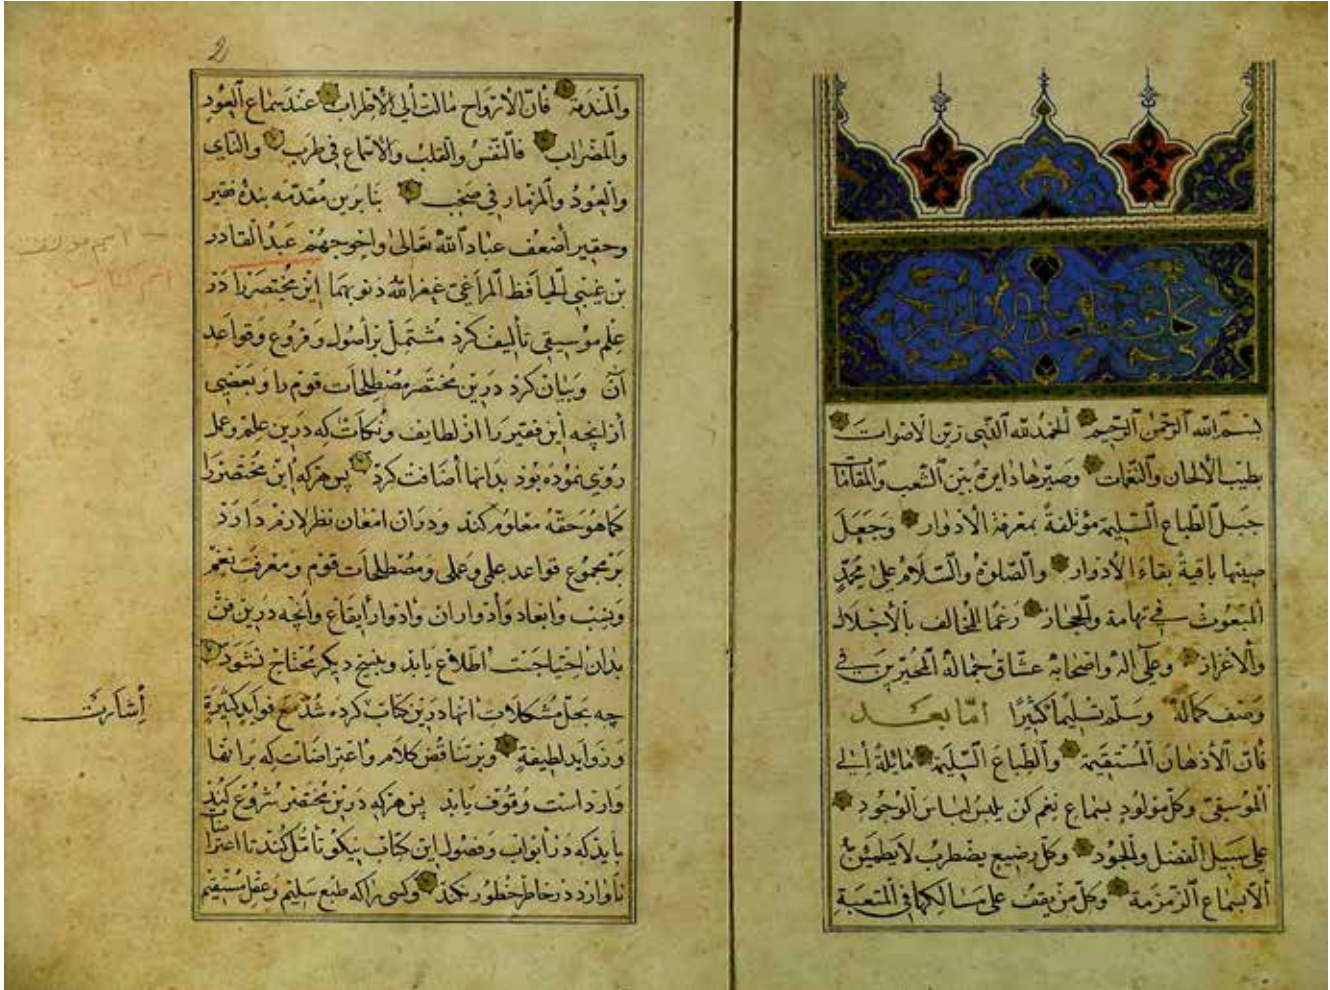 كتاب مقاصد الالحان
بسم الله الرحمن الرحيم الحمد لله الذي زين الاصوات
بطيب الالحان والنغمات وصيرها دايرة بين الشعب والمقامات
جبل الطباع السليمة مؤتلفة بمعرفة الادوار وجعل
صيتها باقية بقاء الادوار والصلوة والسلام على محمد
المبعوث في تهامة والحجاز رغما للمخالف بالاجلال
والاعزاز وعلى اله واصحابه عشاق جماله المحيرين في
وصف كماله وسلم تسليما كثيرا اما بعد
فان الاذهان المستقيمة والطباع السليمة مائلة الى
الموسيقى وكل مولود بسماع نغم كن يلبس لباس الوجود
على سبيل الفضل والجود وكل رضيع يضطرب لا يطمئن
الا بسماع الزمزمة وكل من يقف على مسالكها في المتعبة
2
والمندمة فان الارواح مالت الى الاطراب عند سماع العود
والمضراب فالنفس والقلب والاسماع في طرب والناى
والعود والمزمار في صخب بنا برين مقدمه بندهٔ فقير
وحقير اضعف عباد الله تعالى واحوجهم عبد القادر
بن غيبي الحافظ المراغي غفر الله ذنوبهما اين مختصر را در
علم موسيقى تأليف كرد مشتمل بر اصول و فروع و قواعد
آن وبيان كرد درين مختصر مصطلحات قوم را و بعضى
از انچه اين فقير را از لطايف و نكات كه درين علم و عمل
روى نموده بود بدانها اضافت كرد پس هركه اين مختصر را
كما هو حقه معلوم كند و در ان امعان نظر لازم دارد
بر مجموع قواعد علمى و عملى و مصطلحات قوم و معرفت نغم
و نسب و ابعاد و ادوار ان و ادوار ايقاع و انچه درين فن
بدان احتياجست اطلاع يابد و بنسخ ديگر محتاج نشود
چه بحل مشكلات انها درين كتاب كرده شد مع فوايد كثيرة
و زوايد لطيفة و بر تناقض كلام و اعتراضات كه بر انها
وارد است وقوف يابد پس هركه درين مختصر شروع كند
بايد كه در ابواب و فصول اين كتاب نيكو تأمل كند تا اعتراضات
نا وارد در خاطر خطور نكند و كسى را كه طبع سليم و عقل مستقيم
اسم مولف
اسم كتاب
اشارت